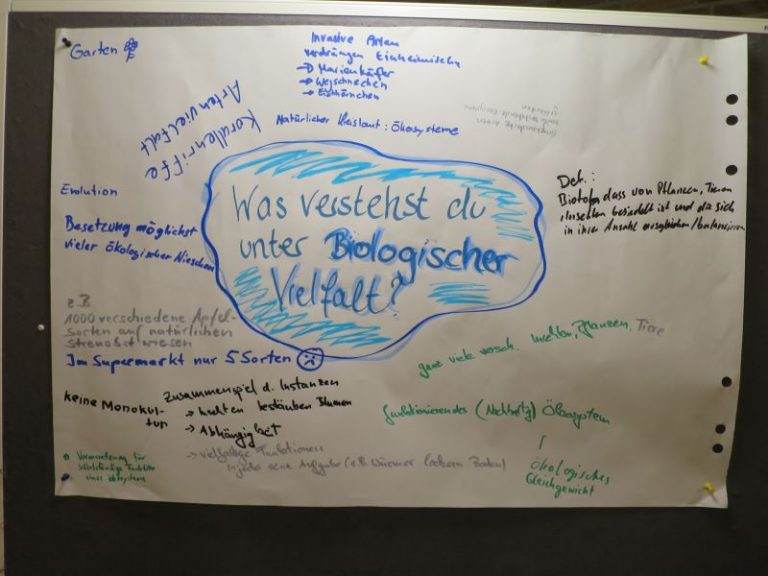 Garten
Invasive Arten
verdrängen Einheimische
→ Marienkäfer
→ Wegschnecken
→ Eichhörnchen
Natürlicher Kreislauf: Ökosysteme
Korallenriffe
Artenvielfalt
Evolution
Besetzung möglichst
vieler ökologischer Nieschen
Was verstehst du
unter Biologischer
Vielfalt?
Def.:
Biotop dass von Pflanzen, Tieren
Insekten besiedelt ist und die sich
in ihrer Anzahl ausgleichen/balancieren
z.B
1000 verschiedene Apfel-
Sorten auf natürlichen
Streuobst wiesen
Im Supermarkt nur 5 Sorten
ganz viele versch. Insekten, Pflanzen, Tiere
keine Monokul-
tur
Zusammenspiel d. Instanzen
→ Insekten bestäuben Blumen
→ Abhängigkeit
→ vielfältige Funktionen
jedes seine Aufgabe (z.B. Würmer lockern Boden)
funktionierendes (Nachhaltig) Ökosystem
ökologisches
Gleichgewicht
Voraussetzung für
vollständige Funktion
eines Ökosystems